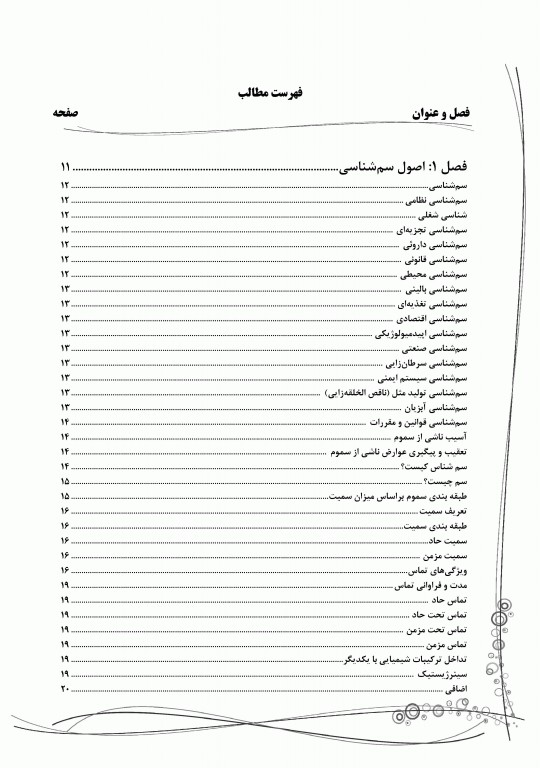 فهرست مطالب
فصل و عنوان صفحه
فصل ۱: اصول سم‌شناسی ۱۱
سم‌شناسی ۱۲
سم‌شناسی نظامی ۱۲
شناسی شغلی ۱۲
سم‌شناسی تجزیه‌ای ۱۲
سم‌شناسی داروئی ۱۲
سم‌شناسی قانونی ۱۲
سم‌شناسی محیطی ۱۲
سم‌شناسی بالینی ۱۳
سم‌شناسی تغذیه‌ای ۱۳
سم‌شناسی اقتصادی ۱۳
سم‌شناسی اپیدمیولوژیکی ۱۳
سم‌شناسی صنعتی ۱۳
سم‌شناسی سرطان‌زایی ۱۳
سم‌شناسی سیستم ایمنی ۱۳
سم‌شناسی تولید مثل (ناقص الخلقه‌زایی) ۱۳
سم‌شناسی آبزیان ۱۳
سم‌شناسی قوانین و مقررات ۱۴
آسیب ناشی از سموم ۱۴
تعقیب و پیگیری عوارض ناشی از سموم ۱۴
سم شناس کیست؟ ۱۴
سم چیست؟ ۱۵
طبقه بندی سموم براساس میزان سمیت ۱۵
تعریف سمیت ۱۶
طبقه بندی سمیت ۱۶
سمیت حاد ۱۶
سمیت مزمن ۱۶
ویژگی‌های تماس ۱۶
مدت و فراوانی تماس ۱۹
تماس حاد ۱۹
تماس تحت حاد ۱۹
تماس تحت مزمن ۱۹
تماس مزمن ۱۹
تداخل ترکیبات شیمیایی با یکدیگر ۱۹
سینرژیستیک ۱۹
اضافی ۲۰